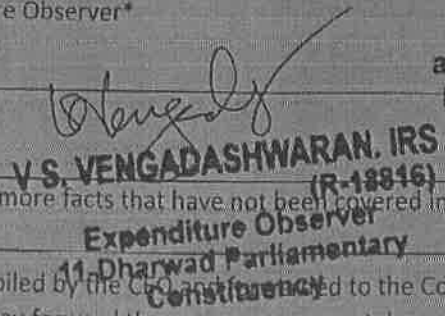 e Observer*
a
V S. VENGADASHWARAN. IRS
(R-18816)
more facts that have not been covered in
Expenditure Observer
11-Dharwad Parliamentary
piled by the CEO and ed to the Co
Constituency